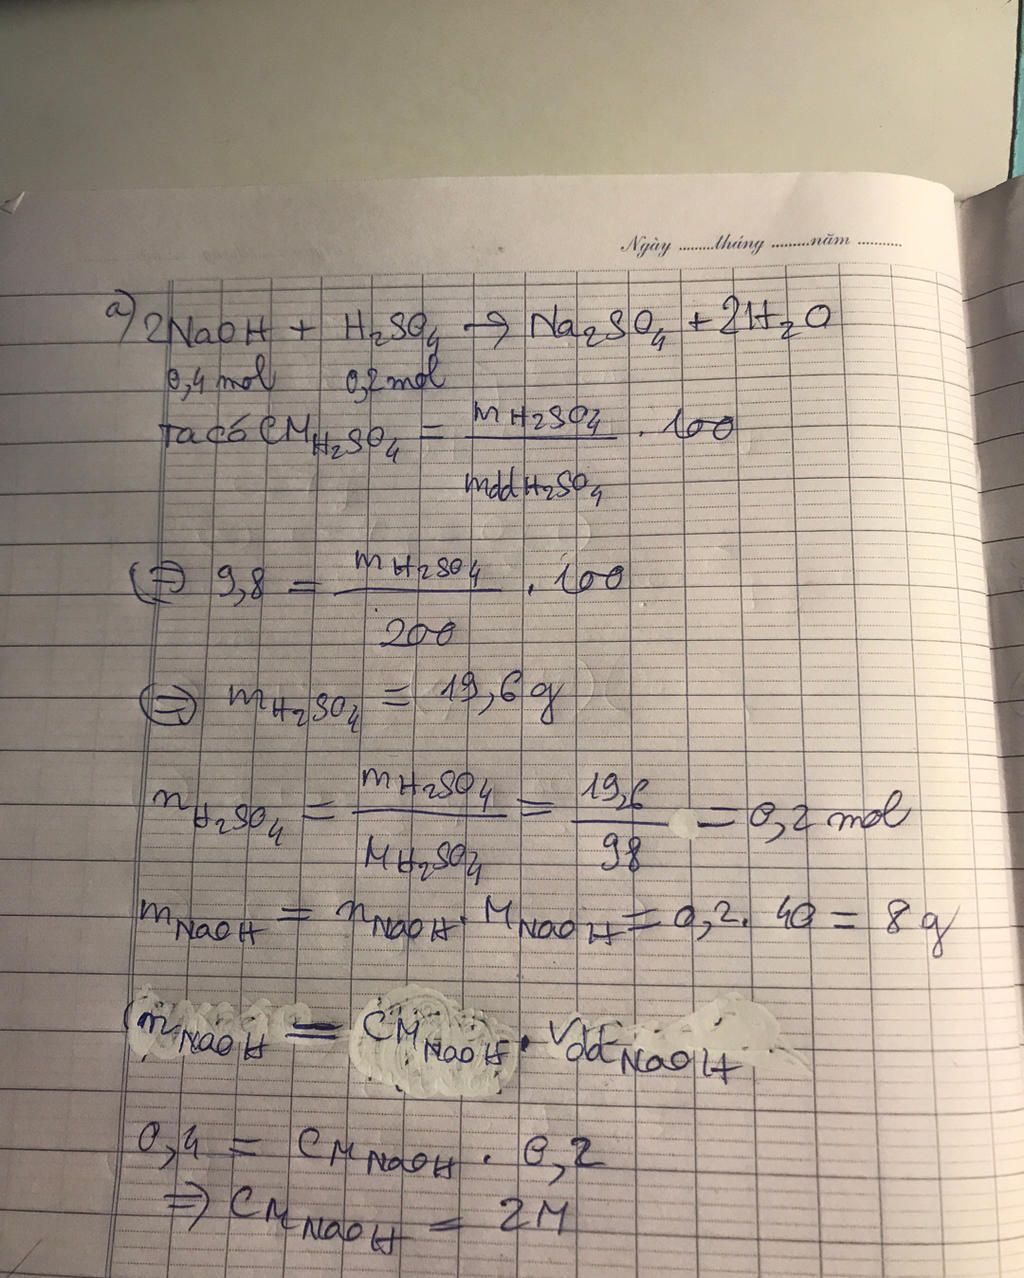 Ngày ........tháng ........năm ..........
a) 2NaOH + H₂SO₄ → Na₂SO₄ + 2H₂O
0,4 mol 0,2 mol
Ta có CM H₂SO₄ = m H₂SO₄ / mdd H₂SO₄ . 100
(=) 9,8 = m H₂SO₄ / 200 . 100
(=) m H₂SO₄ = 19,6 g
n H₂SO₄ = m H₂SO₄ / M H₂SO₄ = 19,6 / 98 = 0,2 mol
m NaOH = n NaOH . M NaOH = 0,2 . 40 = 8 g
(n NaOH = CM NaOH . Vdd NaOH
0,4 = CM NaOH . 0,2
⇒ CM NaOH = 2M